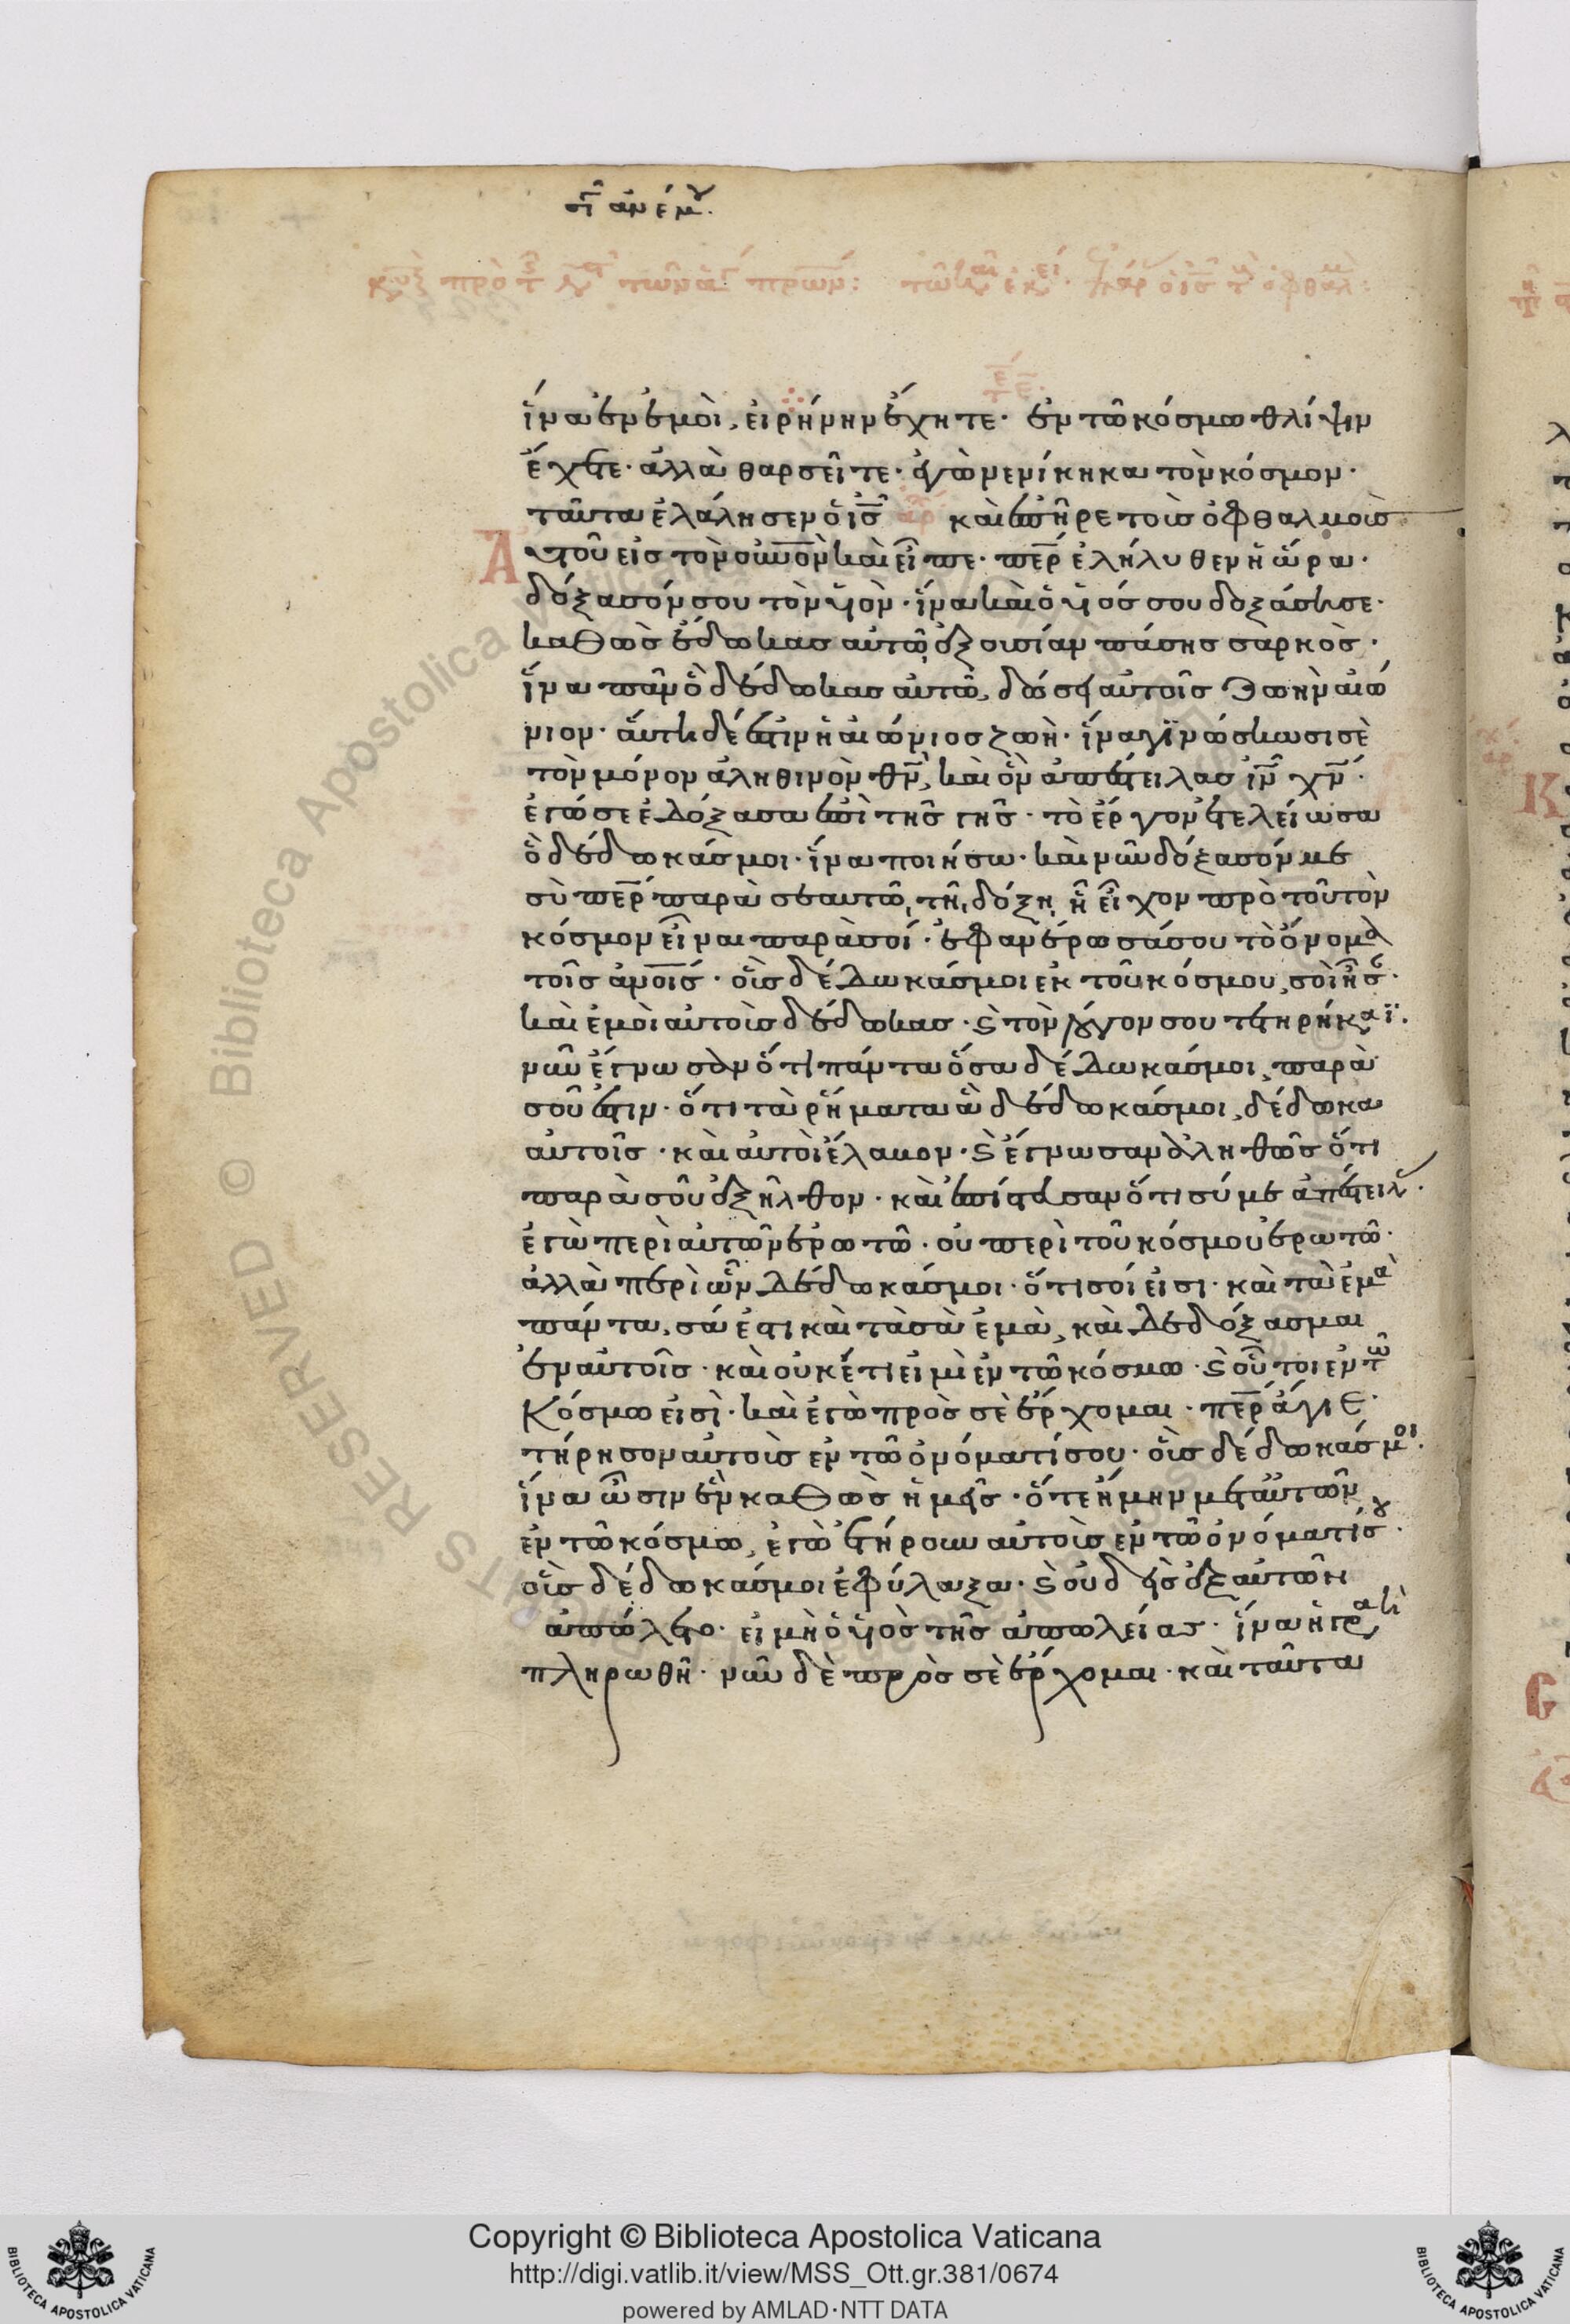 ἵνα ἐν ἐμοὶ, εἰρήνην ἔχητε· ἐν τῶ κόσμω θλίψιν
ἔχετε· ἀλλὰ θαρσεῖτε· ἐγὼ νενίκηκα τὸν κόσμον·
ταῦτα ἐλάλησεν ὁ ἰ̅ς̅ καὶ ἐπῆρε τοὺς ὀφθαλμοὺς
Αὐτοῦ εἰς τὸν ου̅νο̅ν καὶ εἶπε· πε̅ρ ἐλήλυθεν ἡ ὥρα·
δόξασόν σου τὸν υἱὸν· ἵνα καὶ ὁ υἱός σου δοξάση σε·
καθὼς ἔδωκας αὐτῶ, ἐξουσίαν πάσης σαρκὸς·
ἵνα πᾶν ὃ δέδωκας αὐτῶ, δώσει αὐτοῖς ζωὴν αἰώ
νιον· αὕτη δέ ἐστιν ἡ αἰώνιος ζωὴ· ἵνα γινώσκωσι σὲ
τὸν μόνον ἀληθινὸν θ̅ν̅, καὶ ὃν ἀπέστειλας ἰ̅ν̅ χ̅ν̅·
ἐγώ σε ἐδόξασα ἐπὶ τῆς γῆς· τὸ ἔργον ἐτελείωσα
ὃ δέδωκάς μοι· ἵνα ποιήσω· καὶ νῦν δόξασόν με
σὺ πε̅ρ παρὰ σεαυτῶ, τῆ δόξη, ἧ εἶχον πρὸ τοῦ τὸν
κόσμον εἶναι παρὰ σοί· ἐφανέρωσά σου τὸ ὄνομα
τοῖς ἀνο̅ις· οὓς δέδωκάς μοι ἐκ τοῦ κόσμου, σοὶ ἦσ·
καὶ ἐμοὶ αὐτοὺς δέδωκας· ϗ τὸν λόγον σου τετηρήκασι·
νῦν ἔγνωσαν ὅτι πάντα ὅσα δέδωκάς μοι, παρὰ
σοῦ ἐστιν· ὅτι τὰ ῥήματα ἃ δέδωκάς μοι, δέδωκα
αὐτοῖς· καὶ αὐτοὶ ἔλαβον· ϗ ἔγνωσαν ἀληθῶς ὅτι
παρὰ σοῦ ἐξῆλθον· καὶ ἐπίστευσαν ὅτι σύ με ἀπέστειλ·
ἐγὼ περὶ αὐτῶν ἐρωτῶ· οὐ περὶ τοῦ κόσμου ἐρωτῶ·
ἀλλὰ περὶ ὧν δέδωκάς μοι· ὅτι σοί εἰσι· καὶ τὰ ἐμὰ
πάντα, σά ἐστι καὶ τὰ σὰ ἐμὰ, καὶ δεδόξασμαι
ἐν αὐτοῖς· καὶ οὐκέτι εἰμὶ ἐν τῶ κόσμω· ϗ οὗτοι ἐν τῶ
Κόσμω εἰσὶ· καὶ ἐγὼ πρὸς σὲ ἔρχομαι· πε̅ρ ἅγιε·
τήρησον αὐτοὺς ἐν τῶ ὀνόματί σου· οὓς δέδωκάς μοι·
ἵνα ὦσιν ἓν καθὼς ἡμεῖς· ὅτε ἤμην μετ αὐτῶν
ἐν τῶ κόσμω, ἐγὼ ἐτήρουν αὐτοὺς ἐν τῶ ὀνόματί σου·
οὓς δέδωκάς μοι ἐφύλαξα· ϗ οὐδεὶς ἐξ αὐτῶν
ἀπώλετο· εἰ μὴ ὁ υἱὸς τῆς ἀπωλείας· ἵνα ἡ γρα
πληρωθῆ· νῦν δὲ πρὸς σὲ ἔρχομαι· καὶ ταῦτα
Copyright © Biblioteca Apostolica Vaticana
http://digi.vatlib.it/view/MSS_Ott.gr.381/0674
powered by AMLAD·NTT DATA